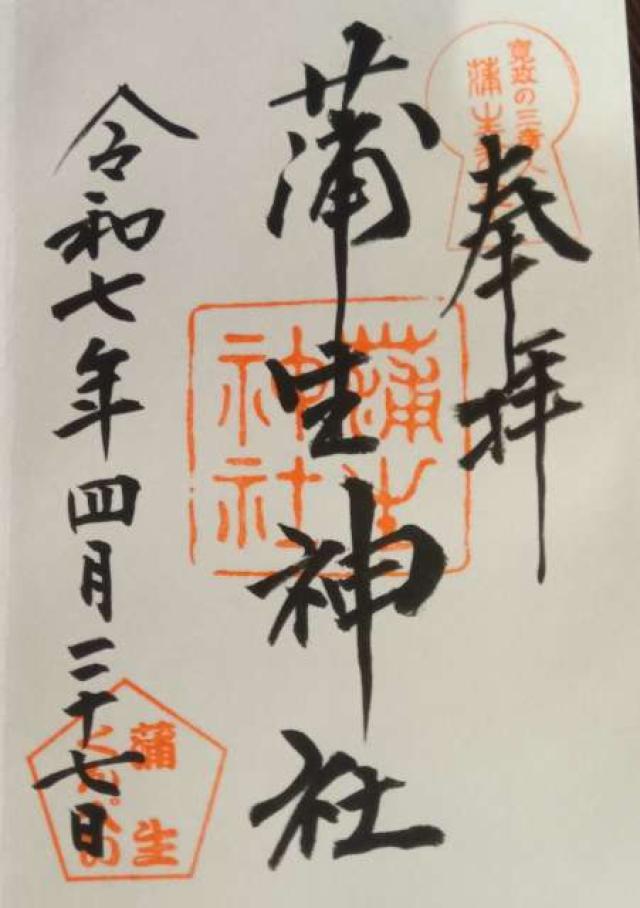 寛政の三奇人
蒲生君平
奉拝
蒲生神社
蒲生
神社
令和七年四月二十七日
蒲生